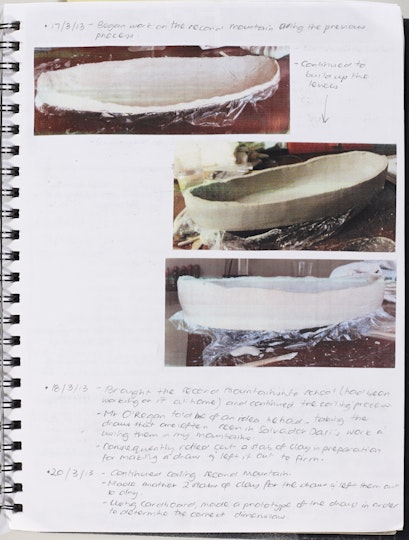 • 17/3/13 - Began work on the second mountain using the previous
process
- Continued to
build up the
levels
• 18/3/13 - Brought the second mountain into school (had been
working on it at home) and continued the coiling process
- Mr O'Regan told me of an idea he had. Taking the
draws that are often seen in Salvador Dali's work &
using them in my mountains
- Consequently rolled out a slab of clay in preparation
for making a draw & left it out to firm.
• 20/3/13 - Continued coiling second mountain
- Made another 2 slabs of clay for the draws & left them out
to dry
- Using cardboard, made a prototype of the draws in order
to determine the correct dimensions